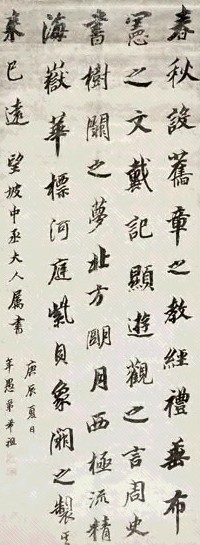 春秋設舊章之教經禮垂布
憲之文戴記顯遊觀之言周史
書樹闕之夢北方朙月西極流精
海嶽華標河庭紫貝象闕之製其
來已遠 望坡中丞大人屬書
庚辰夏日
年愚弟希祖